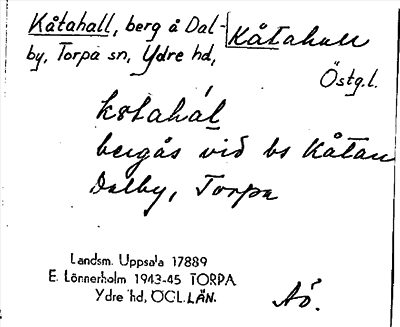 Kåtahall, berg å Dal-
by, Torpa sn, Ydre hd,
Kåtahall
Östg.l.
kåtahál
bergås vid bs Kåtan
Dalby, Torpa
Landsm. Uppsala 17889
E. Lönnerholm 1943-45 TORPA
Ydre hd, ÖGL.LÄN.
Aö.